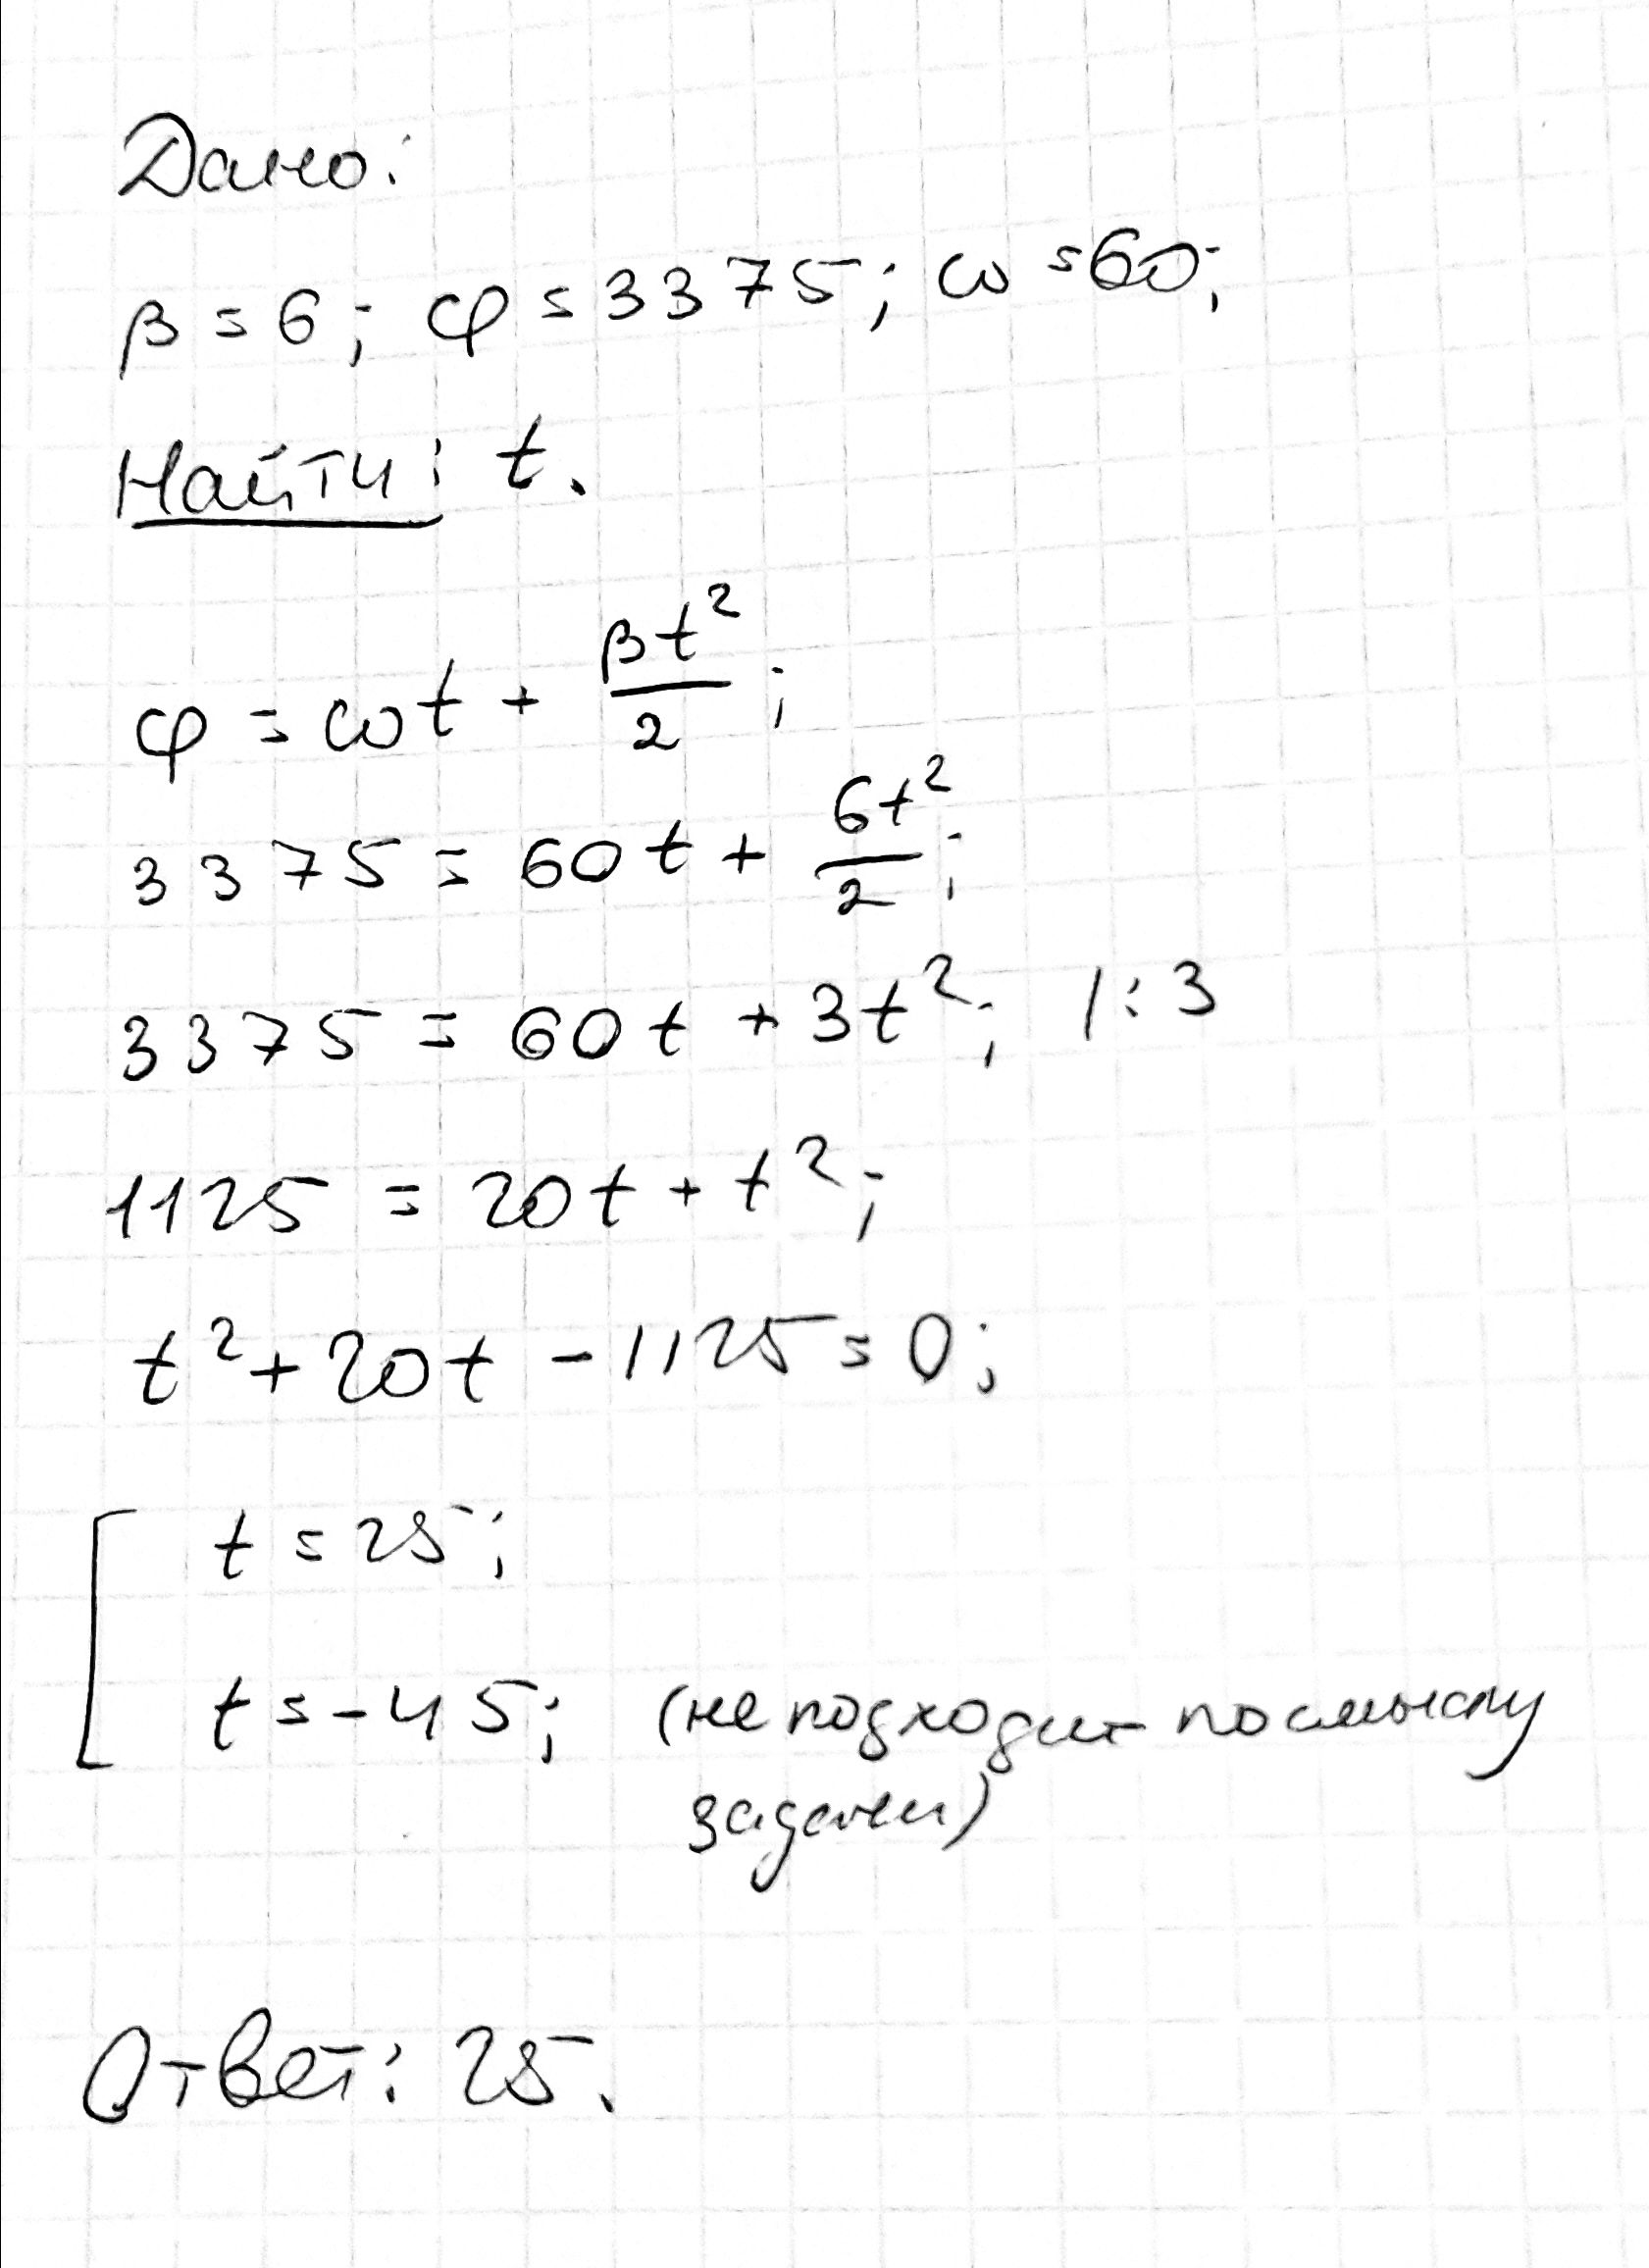 Дано:
β = 6; φ = 3375; ω = 60;
Найти: t.
φ = ωt + βt²/2;
3375 = 60t + 6t²/2;
3375 = 60t + 3t²; |:3
1125 = 20t + t²;
t² + 20t - 1125 = 0;
[ t = 25;
t = -45; (не подходит по смыслу
задачи)
Ответ: 25.